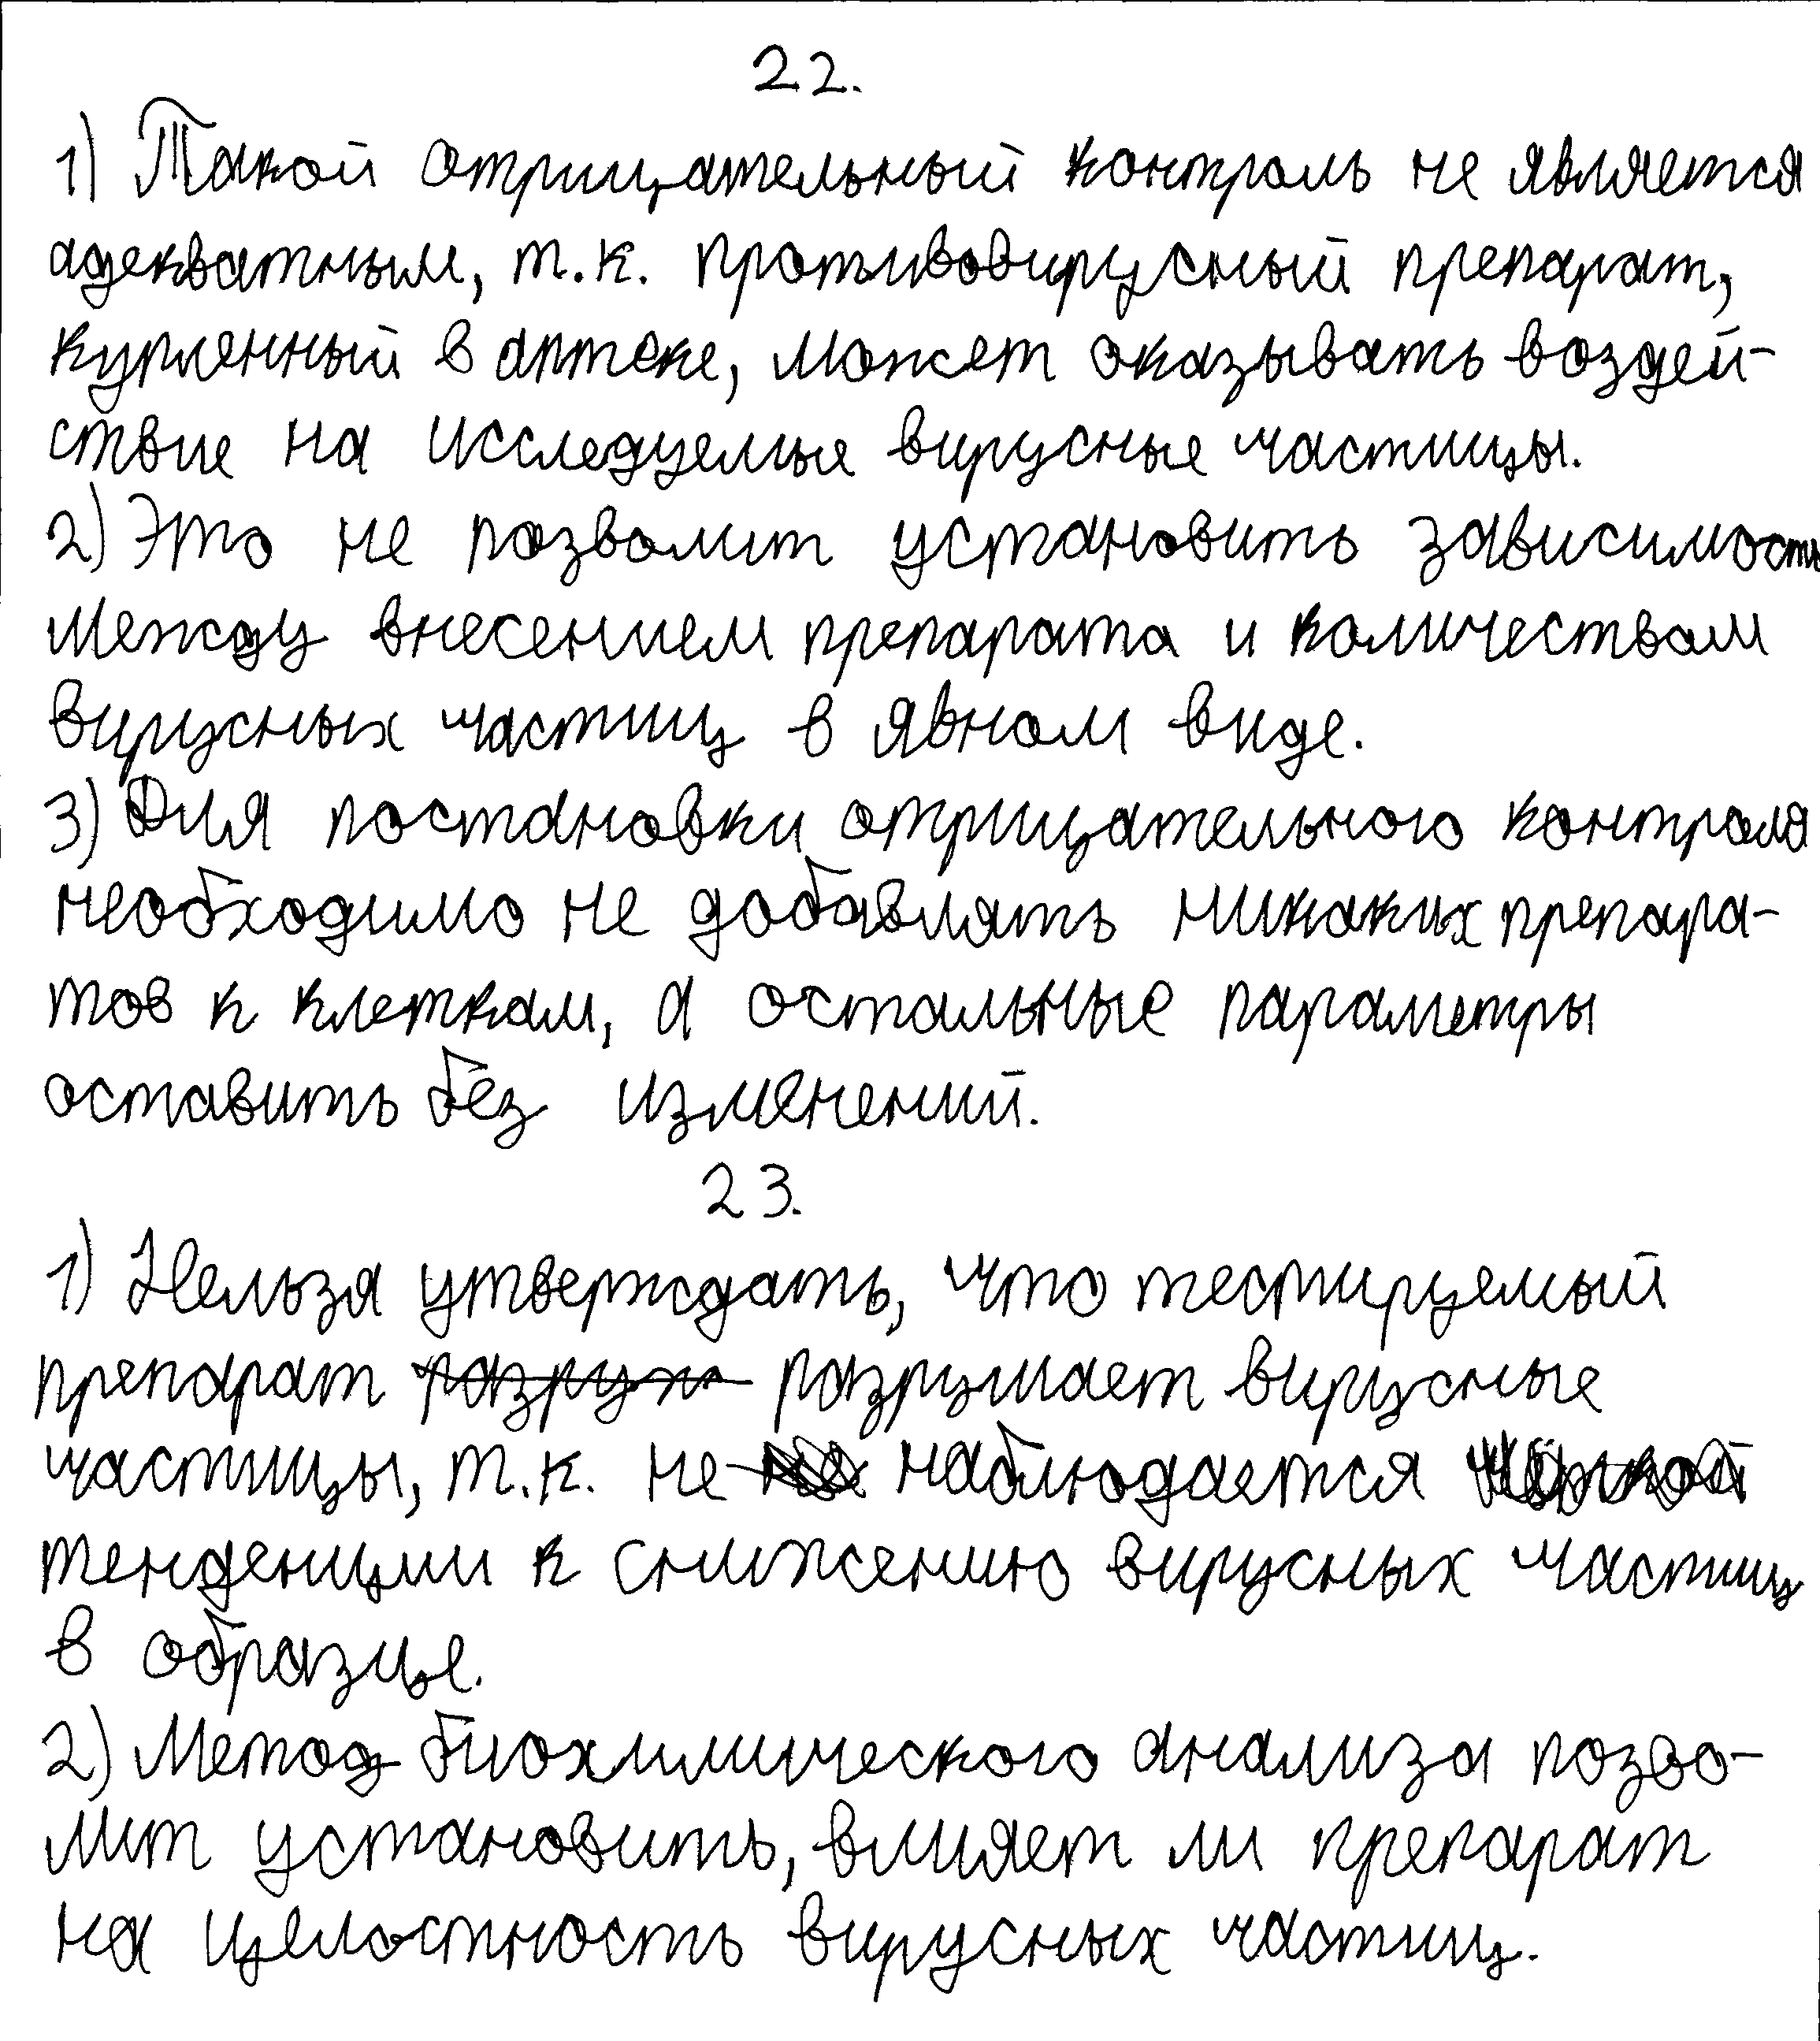 22.
1) Такой отрицательный контроль не является
адекватным, т.к. противовирусный препарат,
купленный в аптеке, может оказывать воздей-
ствие на исследуемые вирусные частицы.
2) Это не позволит установить зависимость
между внесением препарата и количеством
вирусных частиц в явном виде.
3) Для постановки отрицательного контроля
необходимо не добавлять никаких препара-
тов к клеткам, а остальные параметры
оставить без изменений.
23.
1) Нельзя утверждать, что тестируемый
препарат разрушает вирусные
частицы, т.к. не наблюдается
тенденции к снижению вирусных частиц
в образце.
2) Метод биохимического анализа позво-
лит установить, влияет ли препарат
на целостность вирусных частиц.